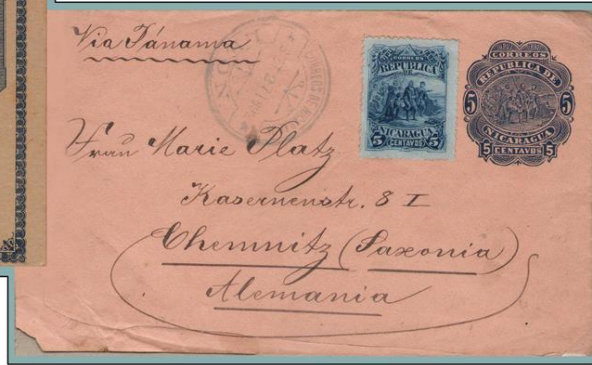 Via Pánama
CORREOS
REPUBLICA
DE
NICARAGUA
5 CENTAVOS 5
CORREOS
REPUBLICA DE
5 5
NICARAGUA
5 CENTAVOS 5
Frau Marie Platz
Kasernenstr. 8 I
Chemnitz (Saxonia)
Alemania